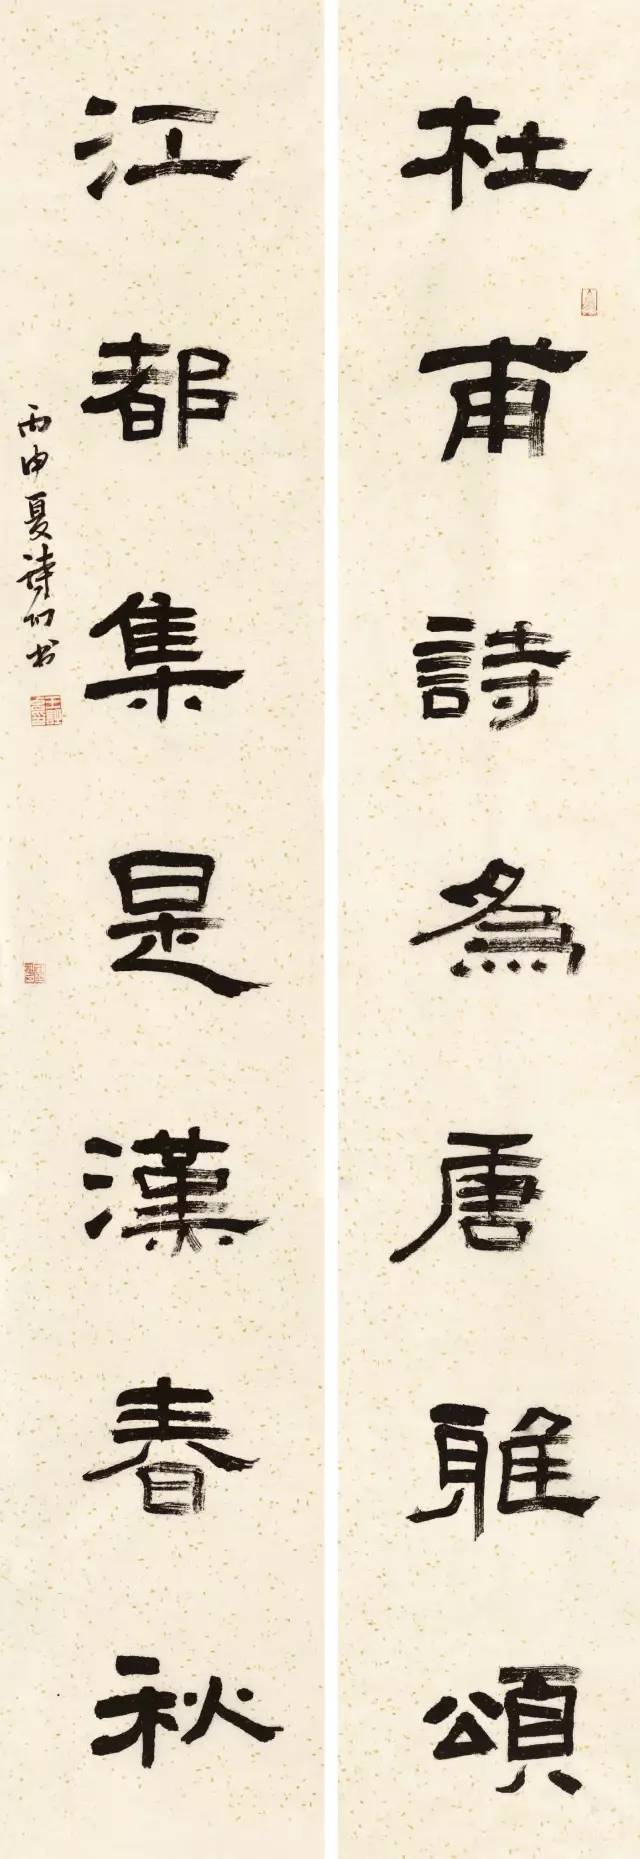 杜甫詩為唐雅頌
江都集是漢春秋
丙申夏詩㓛书